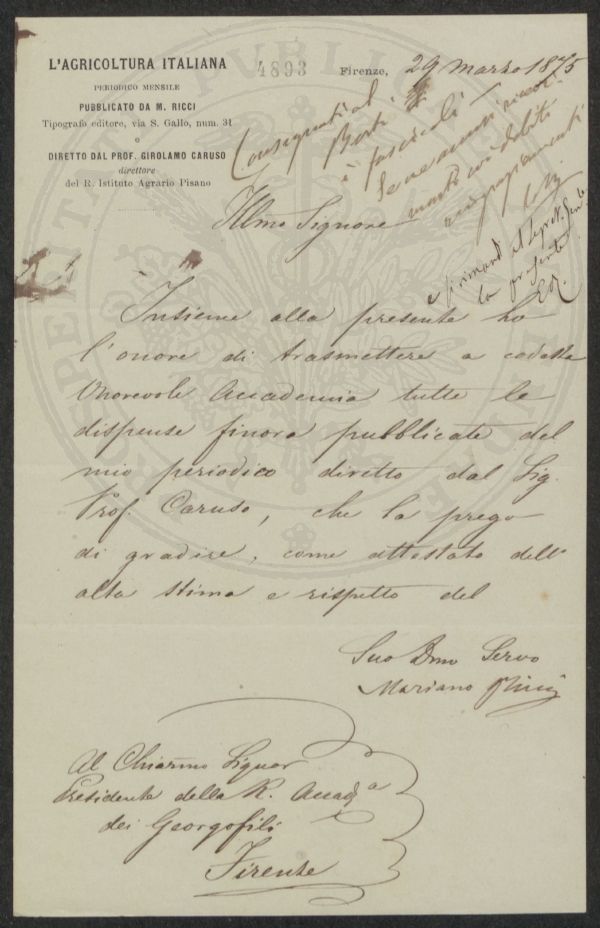 L'AGRICOLTURA ITALIANA
PERIODICO MENSILE
PUBBLICATO DA M. RICCI
Tipografo editore, via S. Gallo, num. 31
e
DIRETTO DAL PROF. GIROLAMO CARUSO
direttore
del R. Istituto Agrario Pisano
4893 Firenze, 29 Marzo 1875
Consegnati al
Berti
i fascicoli
Se ne accusi ricevi-
mento con debiti
ringraziamenti
e si rimandi al Segret. Gen.le
la presente
Illmo Signore
Insieme alla presente ho
l'onore di trasmettere a codesta
Onorevole Accademia tutte le
dispense finora pubblicate del
mio periodico diretto dal Sig.
Prof. Caruso, che la prego
di gradire, come attestato dell'
alta stima e rispetto del
Suo Dmo Servo
Mariano Ricci
Al Chiarmo Signor
Presidente della R. Accad.a
dei Georgofili
Firenze
PROSPERITATI PVBLICAE AVGENDAE